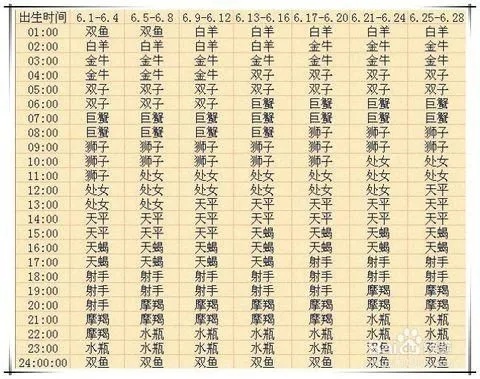 出生时间 6.1-6.4 6.5-6.8 6.9-6.12 6.13-6.16 6.17-6.20 6.21-6.24 6.25-6.28
01:00 双鱼 双鱼 白羊 白羊 白羊 白羊 白羊
02:00 白羊 白羊 白羊 白羊 金牛 金牛 金牛
03:00 金牛 金牛 金牛 金牛 金牛 金牛 金牛
04:00 金牛 金牛 金牛 双子 双子 双子 双子
05:00 双子 双子 双子 双子 双子 双子 双子
06:00 双子 双子 双子 巨蟹 巨蟹 巨蟹 巨蟹
07:00 巨蟹 巨蟹 巨蟹 巨蟹 巨蟹 巨蟹 巨蟹
08:00 巨蟹 巨蟹 巨蟹 狮子 狮子 狮子 狮子
09:00 狮子 狮子 狮子 狮子 狮子 狮子 狮子
10:00 狮子 狮子 狮子 狮子 狮子 处女 处女
11:00 狮子 处女 处女 处女 处女 处女 处女
12:00 处女 处女 处女 处女 处女 处女 天平
13:00 处女 处女 天平 天平 天平 天平 天平
14:00 天平 天平 天平 天平 天平 天平 天平
15:00 天平 天平 天平 天蝎 天蝎 天蝎 天蝎
16:00 天蝎 天蝎 天蝎 天蝎 天蝎 天蝎 天蝎
17:00 天蝎 天蝎 天蝎 天蝎 射手 射手 射手
18:00 射手 射手 射手 射手 射手 射手 射手
19:00 射手 射手 射手 射手 射手 摩羯 摩羯
20:00 射手 摩羯 摩羯 摩羯 摩羯 摩羯 摩羯
21:00 摩羯 摩羯 摩羯 摩羯 摩羯 水瓶 水瓶
22:00 摩羯 水瓶 水瓶 水瓶 水瓶 水瓶 水瓶
23:00 水瓶 水瓶 水瓶 水瓶 水瓶 双鱼
24:00:00 双鱼 双鱼 双鱼 双鱼 双鱼 双鱼 双鱼